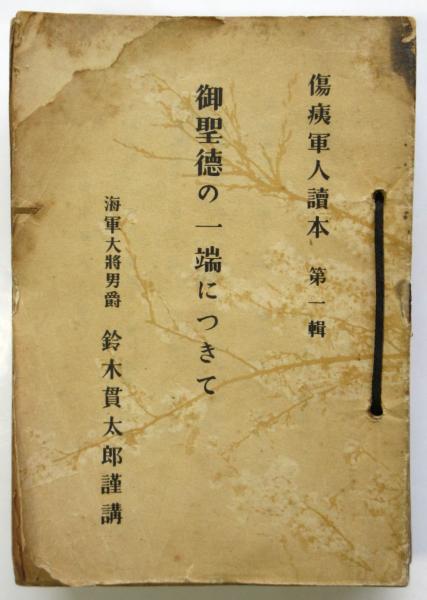 傷痍軍人讀本 第一輯
御聖德の一端につきて
海軍大將男爵 鈴木貫太郎謹講